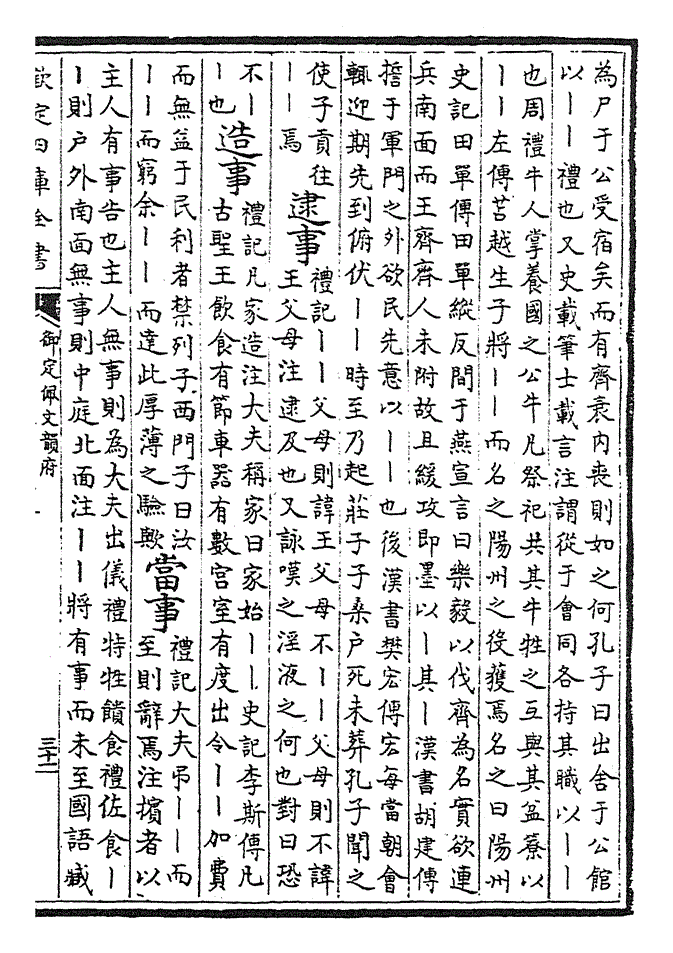 為尸于公受宿矣而有齊衰内喪則如之何孔子曰出舍于公館
以丨丨禮也又史載筆士載言注謂從于會同各持其職以丨丨
也周禮牛人掌養國之公牛凡祭祀共其牛牲之互與其盆簝以
丨丨左傳苫越生子將丨丨而名之陽州之役獲焉名之曰陽州
史記田單傳田單縱反間于燕宣言曰樂毅以伐齊為名實欲連
兵南面而王齊齊人未附故且緩攻即墨以丨其丨漢書胡建傳
擔于軍門之外欲民先意以丨丨也後漢書樊宏傳宏每當朝會
輒迎期先到俯伏丨丨時至乃起莊子子桑户死未葬孔子聞之
使子貢往
丨丨焉
逮事
禮記丨丨父母則諱王父母不丨丨父母則不諱
王父母注逮及也又詠嘆之淫液之何也對曰恐
不丨
丨也
造事
禮記凡家造注大夫稱家曰家始丨丨史記李斯傳凡
古聖王飲食有節車器有數宫室有度出令丨丨加費
而無益于民利者禁列子西門子曰汝
丨丨而窮余丨丨而達此厚薄之驗歟
當事
禮記大夫弔丨丨而
至則辭焉注擯者以
主人有事告也主人無事則為大夫出儀禮特牲饋食禮佐食丨
丨則户外南面無事則中庭北面注丨丨將有事而未至國語臧
欽定四庫全書
御定佩文韻府
三十二